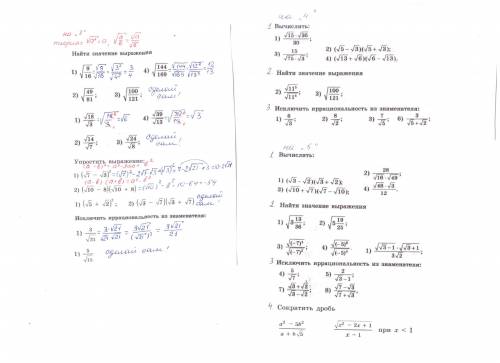 на „3"
теория: √a² = a, √(a/b) = √a/√b
Найти значение выражения
1) √(9/16) = √9/√16 = √3²/√4² = 3/4
4) √(144/169) = √144/√169 = √12²/√13² = 12/13
2) √(49/81);
3) √(100/121);
сделай сам!
1) √18/√3
= √6
4) √39/√13
= √3
2) √14/√7;
3) √24/√8;
сделай сам!
Упростить выражение:
(a-b)² = a² - 2ab + b²
1) (√7 - √3)²
(a-b)(a+b) = a² - b²
2) (√10 - 8)(√10 + 8) = (√10)² - 8² = 10 - 64 = -54
1) (√5 + √2)²;
2) (√3 - √7)(√3 + √7)
сделай сам
Исключить иррациональность из знаменателя:
1) 3/√21 = 3·√21/√21·√21 = 3√21/(√21)² = 3√21/21
1) 5/√15
сделай сам!
на „4"
1 Вычислить:
1) √15·√36/30;
2) (√5 - √3)(√5 + √3);
3) 15/√75·√3;
4) (√13 + √6)(√6 - √13).
2 Найти значение выражения
1) √11⁶/√11⁴;
2) √(100/121);
3 Исключить иррациональность из знаменателя:
1) 6/√3;
2) 8/√2;
5) 7/√5;
6) 3/√5+√2
на „5"
1 Вычислить:
1) (√3 - √2)(√3 + √2);
2) 28/√16·√49;
3) (√10 + √7)(√7 - √10);
4) √48·√3/12.
2 Найти значение выражения
1) √(3 13/36);
2) √(5 19/25);
3) √((-7)⁴/(-7)²);
4) √((-5)⁶/(-5)⁴).
1) √(√3-1)·√(√3+1)/3√2;
3 Исключить иррациональность из знаменателя:
4) 5/√7;
5) 2/√3-1;
7) √3+√2/√3-√2;
8) √7-√3/√7+√3.
4 Сократить дробь
a² - 5b²/a + b√5
√(x² - 2x + 1)/x - 1 при x < 1